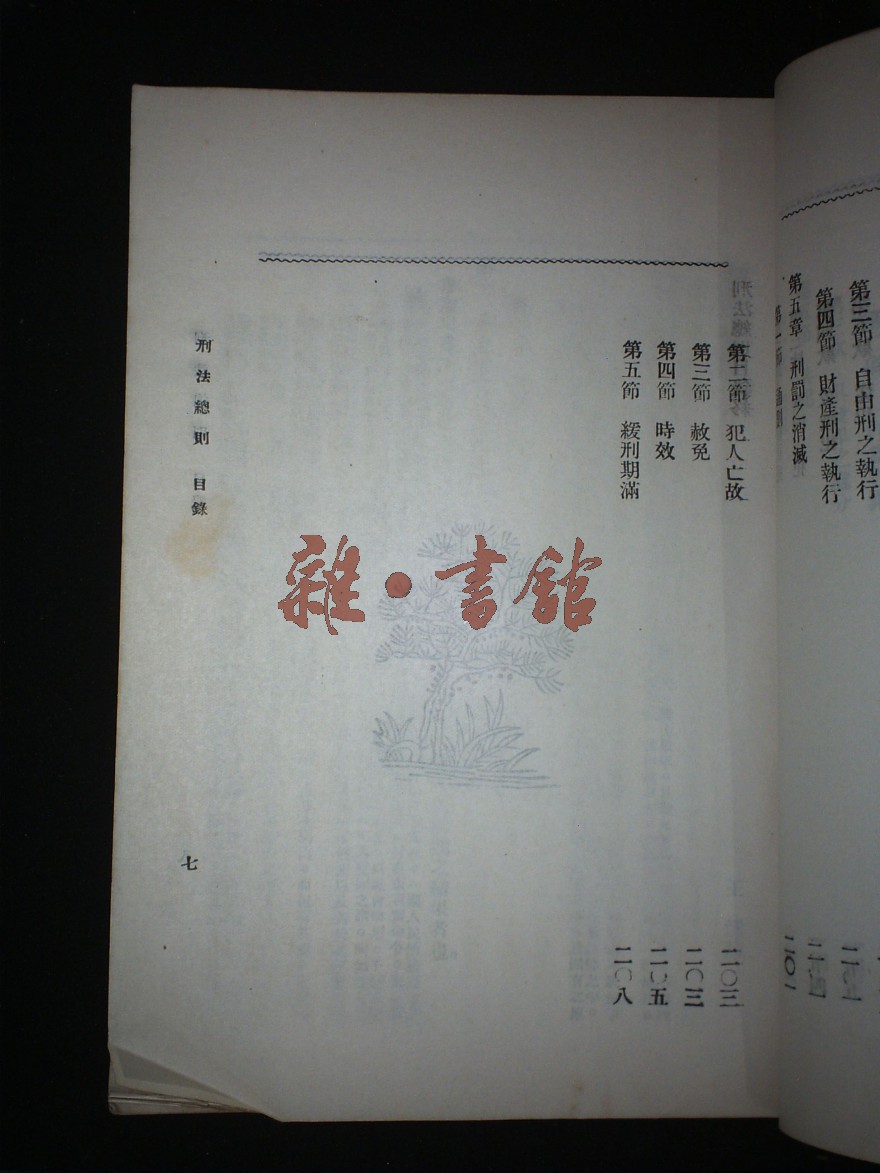 第三節 自由刑之執行
第四節 財產刑之執行
第五章 刑罰之消滅
第二節 犯人亡故 二〇三
第三節 赦免 二〇三
第四節 時效 二〇五
第五節 緩刑期滿 二〇八
刑法總則 目錄
七
雜·書館